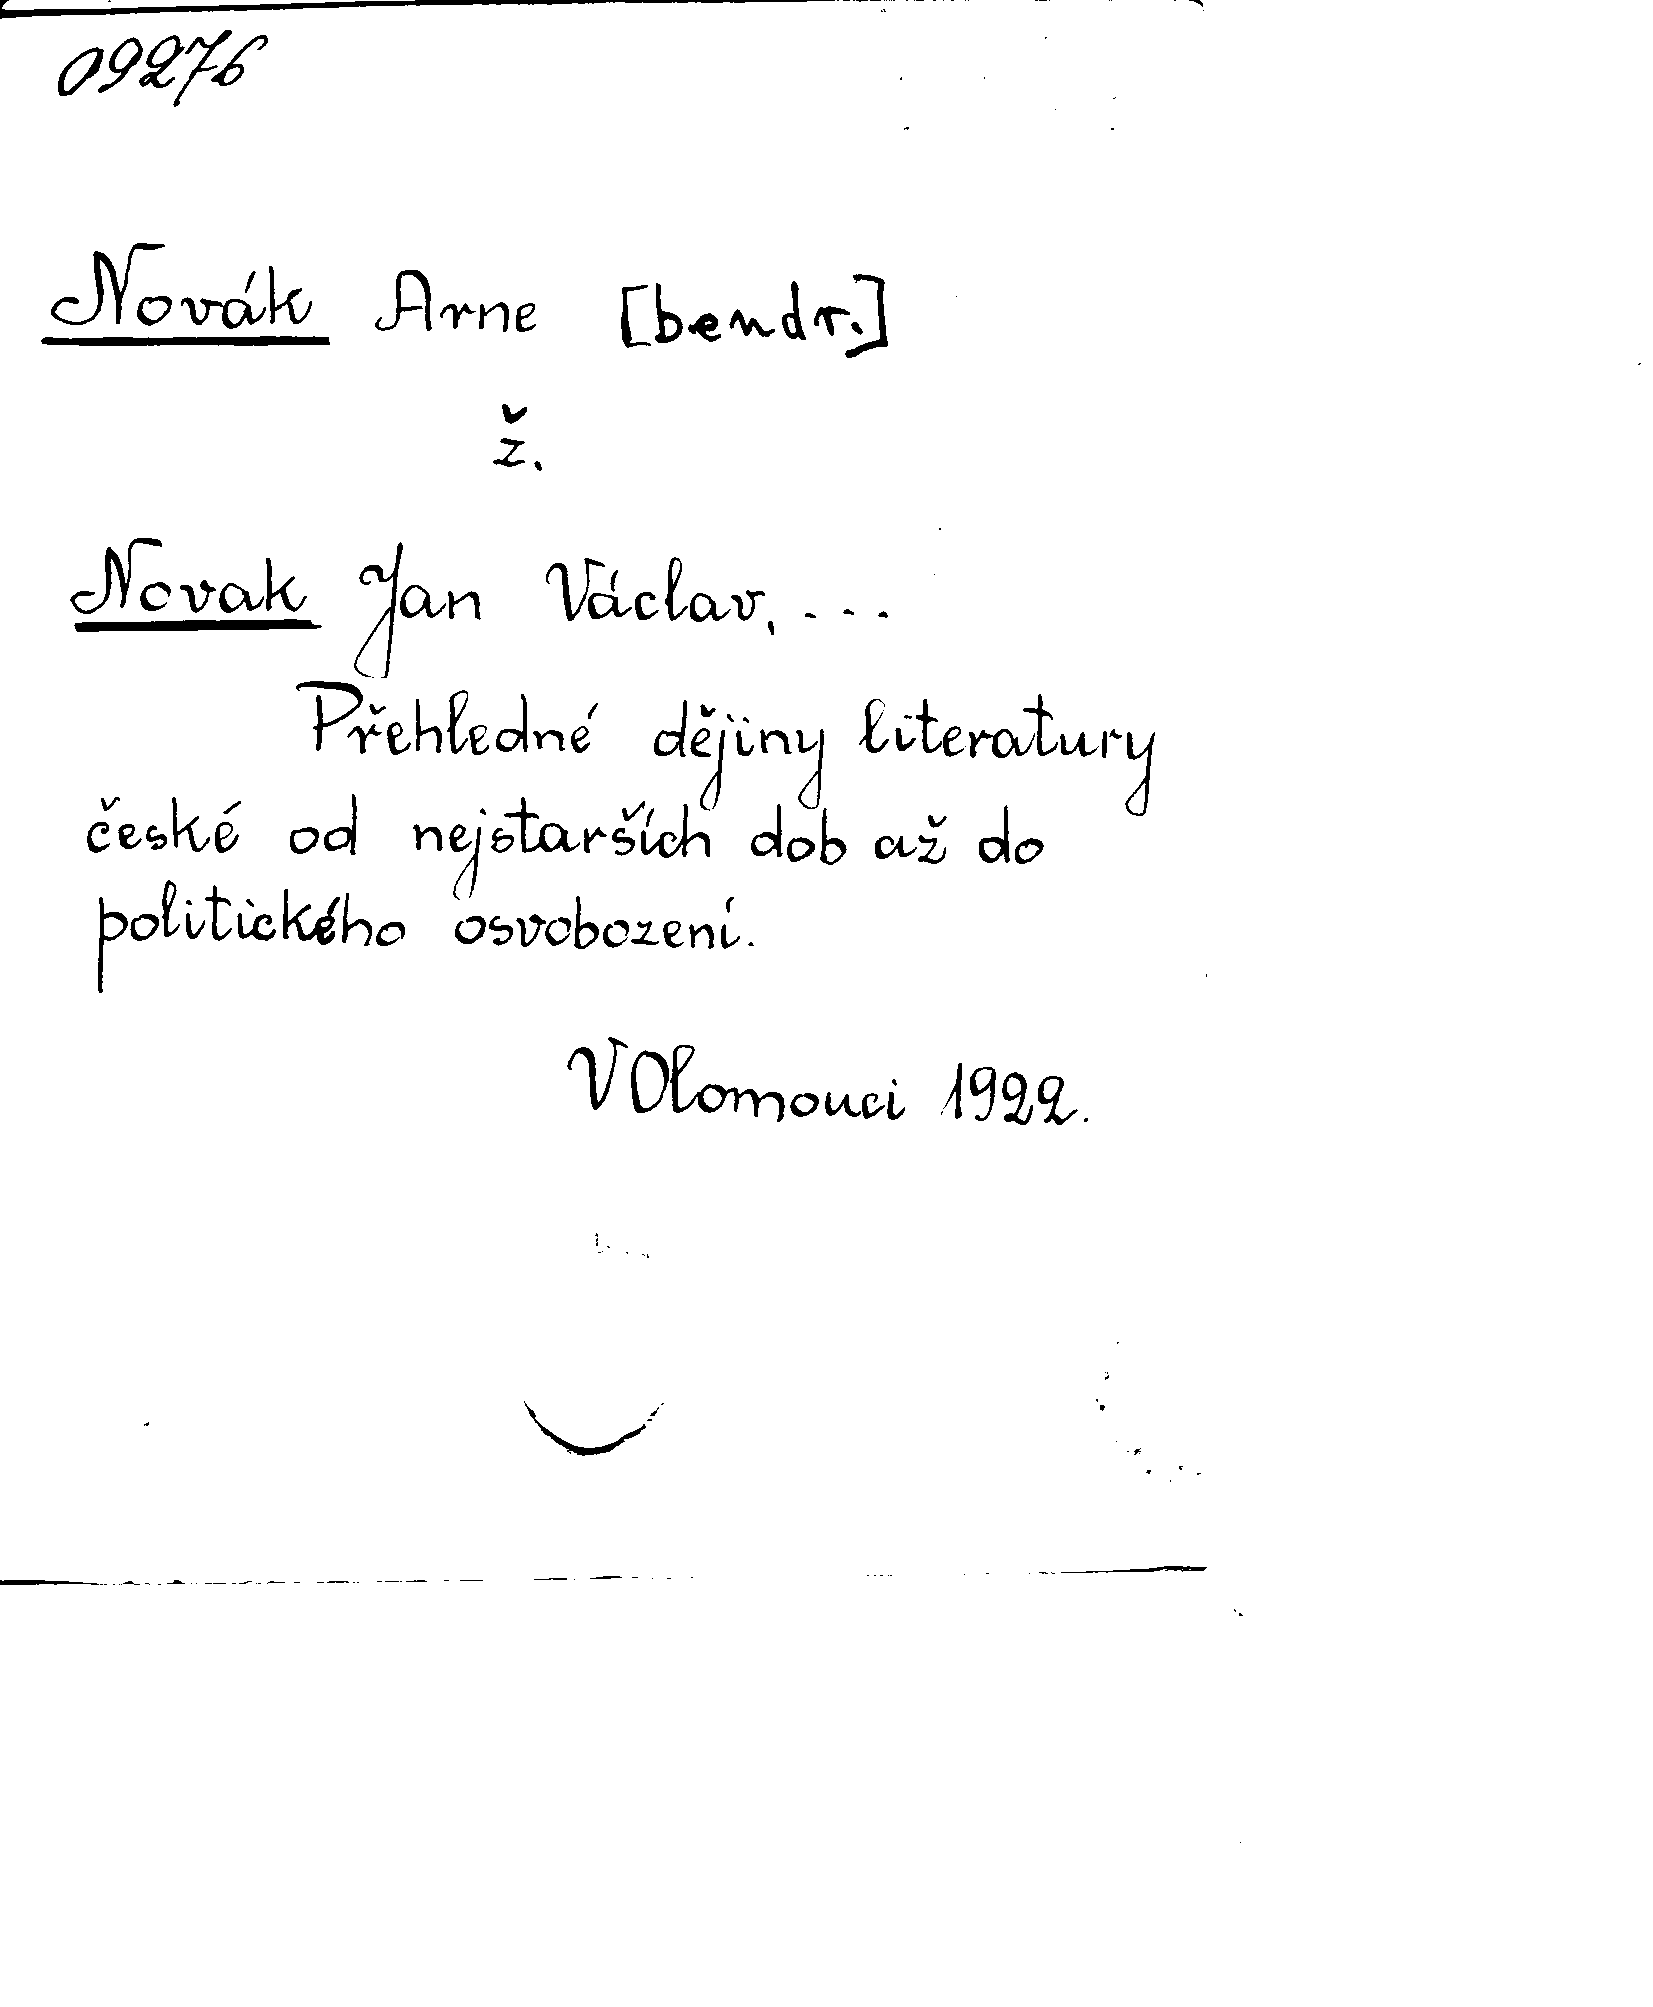 09276
Novák Arne [bendr.]
ž.
Novak Jan Václav, ...
Přehledné dějiny literatury
české od nejstarších dob až do
politického osvobození.
V Olomouci 1922.